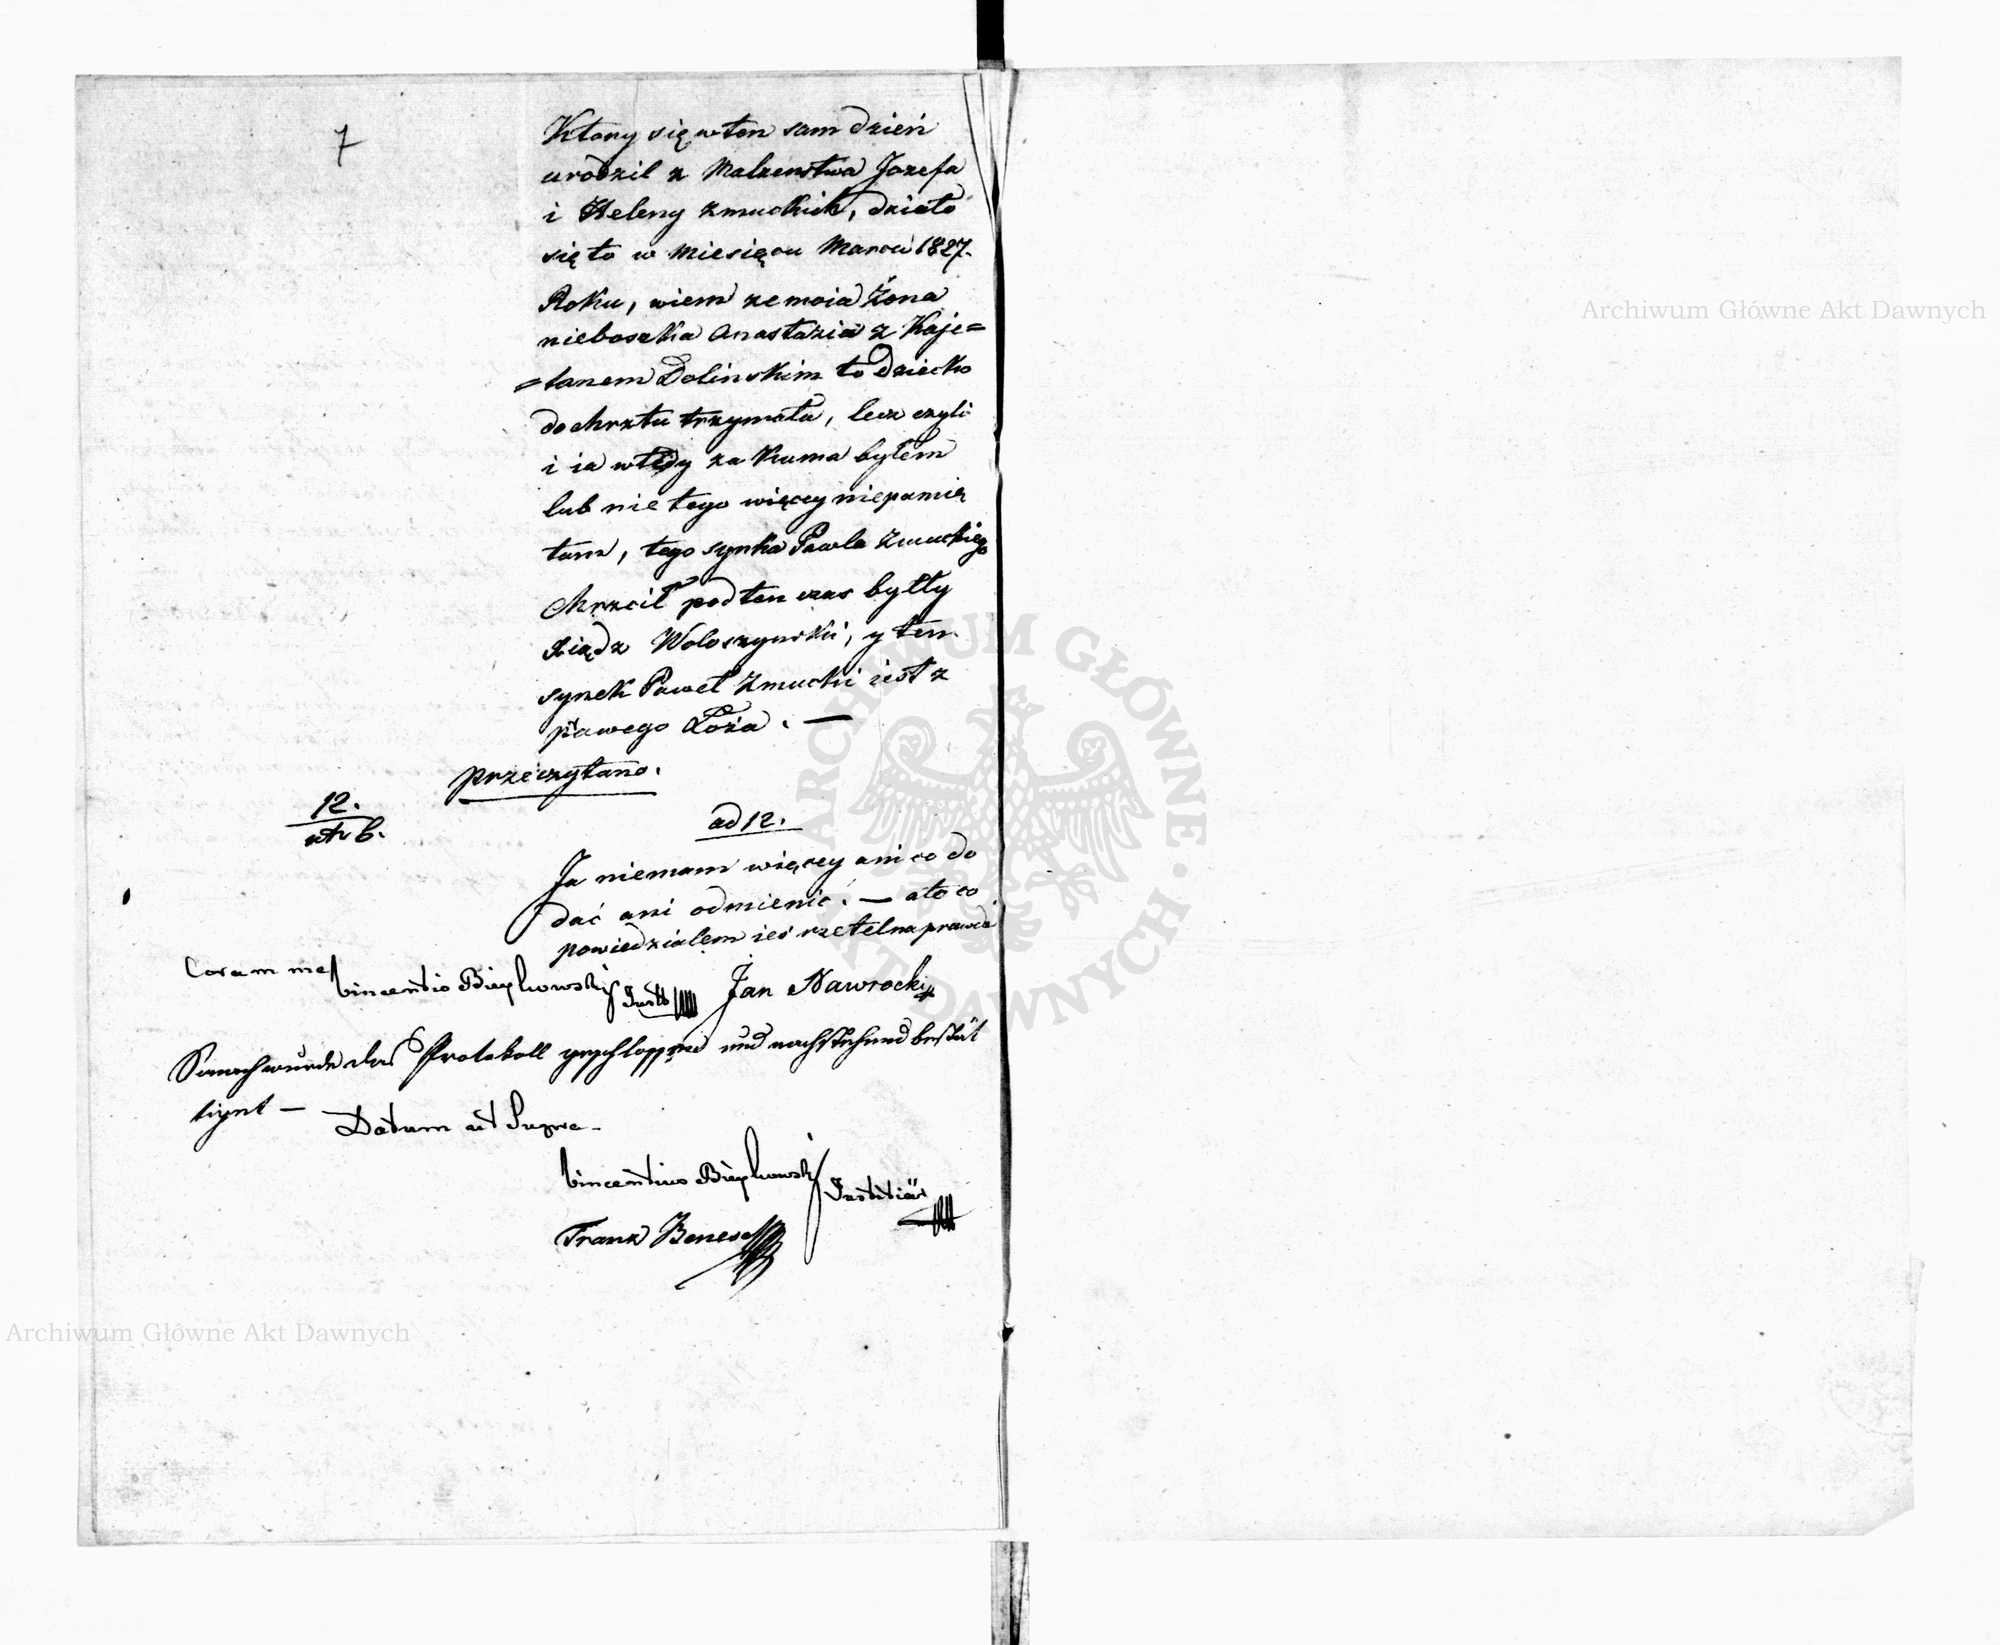 7
Ktory się w ten sam dzień
urodzil z Malzenstwa Jozefa
i Heleny Zmuckich, dziato
się to w Miesięcu Marcu 1827.
Roku, wiem ze moia Żona
nieboszka Anastazia z Kaje=
=tanem Dolinskim to Dziecko
do chrztu trzymała, lecz czyli
i ia wtedy za Kuma byłem
lub nie tego więcey niepamię
tam, tego synka Pawla Zmuckiego
Chrzcił pod ten czas byłły
Xiądz Woloszynski, y ten
synek Paweł Zmucki iest z
prawego Łoża. —
przeczytano.
12.
ut b.
ad 12.
Ja niemam więcey ani co do
dać ani odmienić. — a to co
powiedzialem ies rzetelna prawda
Coram me Vincentio
Jan Nawrocki
Sonach wurde das Protokoll geschlossen und nachstehend bestät
tigt —
Datum ut Supra.
Vincentius Justitiär
Franz Benesch
Archiwum Główne Akt Dawnych
Archiwum Główne Akt Dawnych
ARCHIWUM GŁÓWNE · AKT DAWNYCH ·